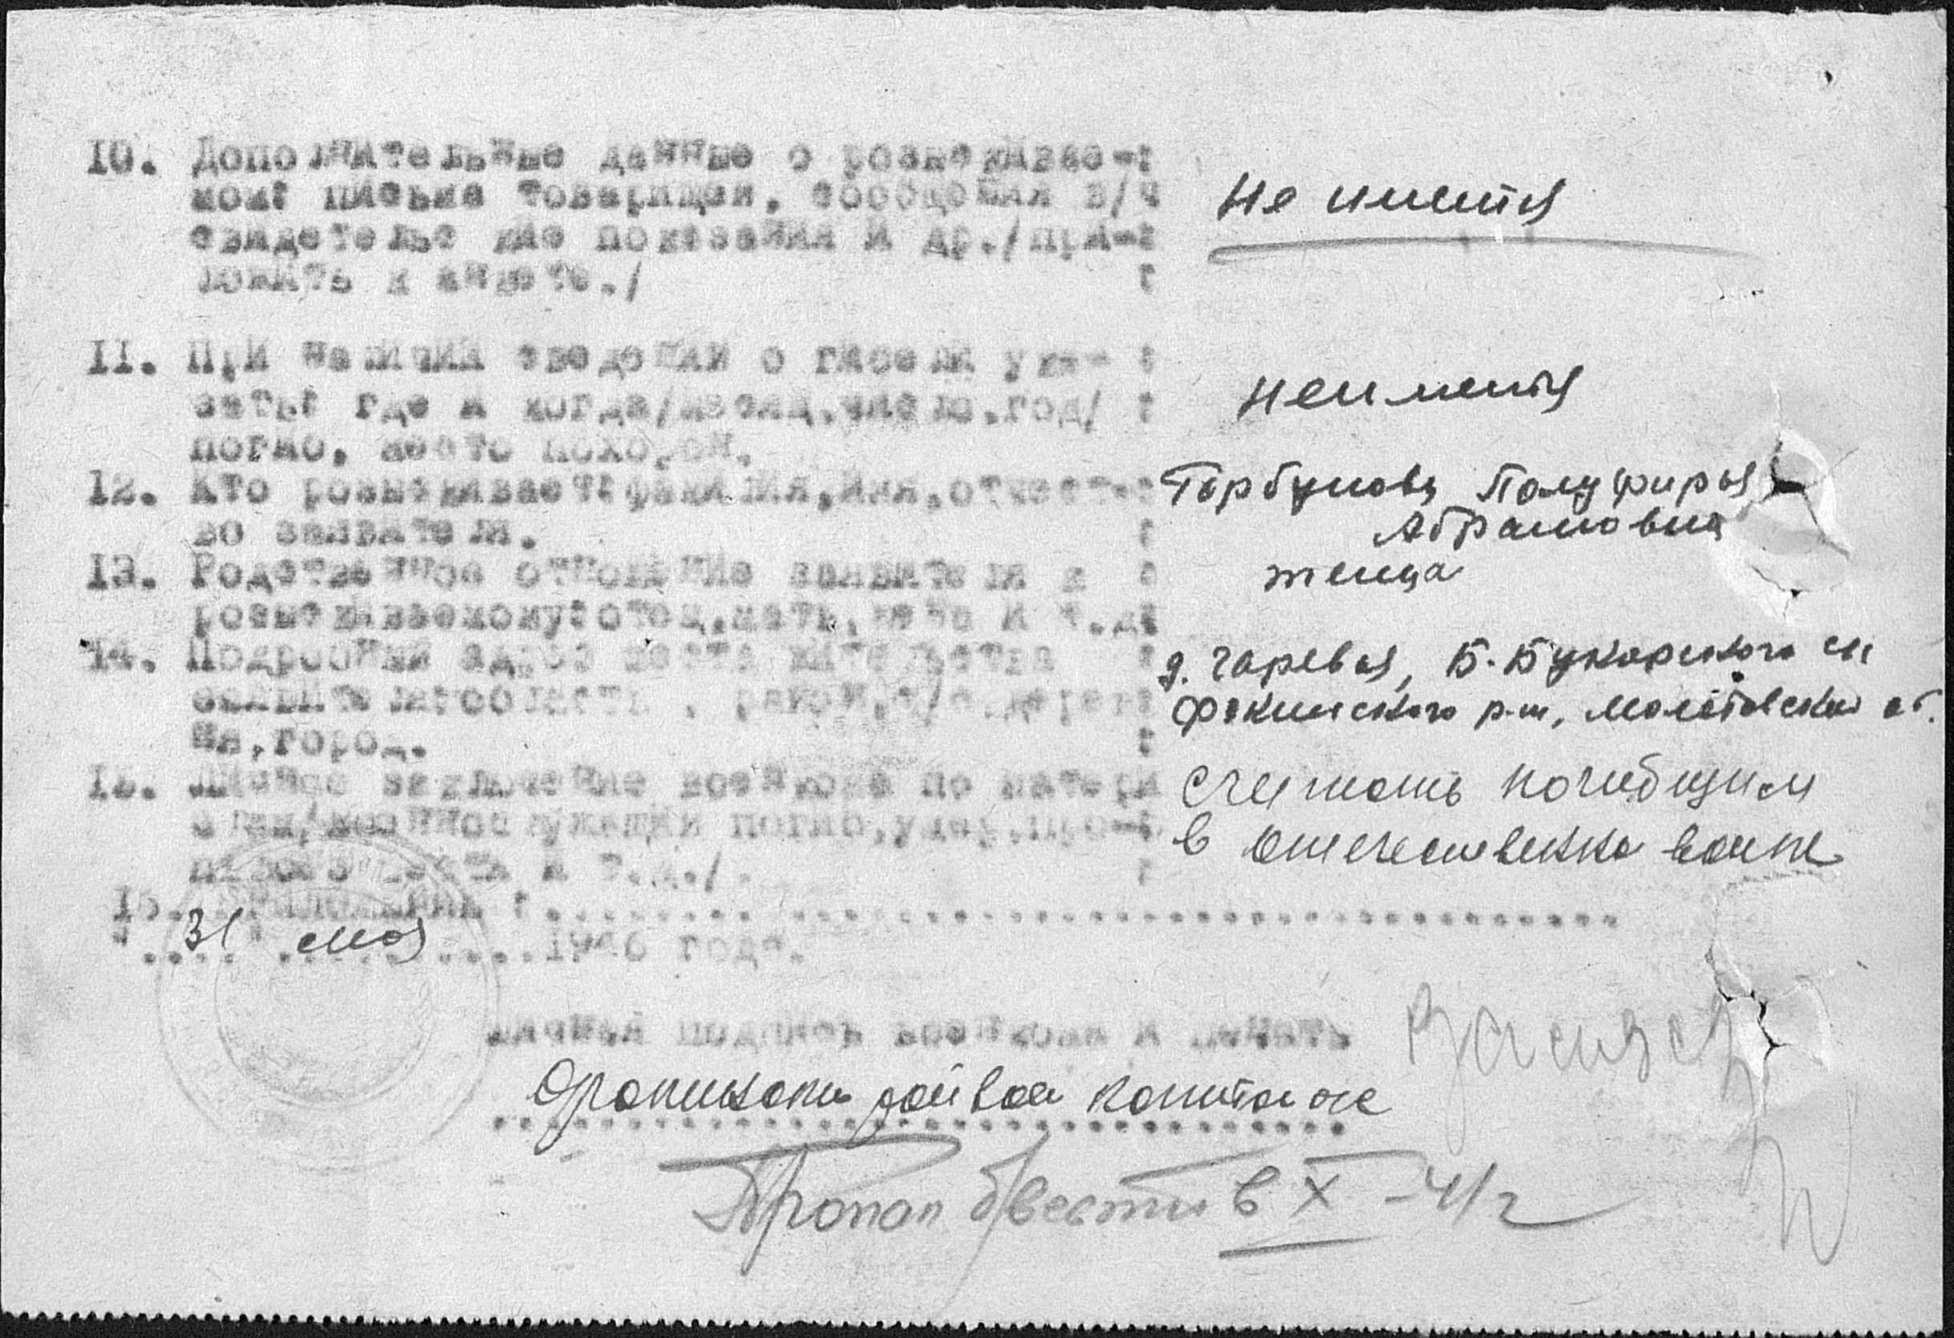 10. Дополнительные данные о розыскивае-:
мом: письма товарищей, сообщения в/ч
свидетельские показания и др./при-:
ложить к анкете./ :
не имеется
11. При наличии сведений о гибели ука- :
зать: где и когда/месяц, число, год/ :
погиб, место похорон.
не имется
12. Кто розыскивает: фамилия, имя, отчест-:
во заявителя. :
Горбунова
Абрамовна
13. Родственное отношение заявителя к :
розыскиваемому: отец, мать, жена и т.д:
жена
14. Подробный адрес места жительства :
заявителя: область, район, с/с, дерев:
ня, город. :
д. Гаревая, Б-Букорского с/с
Фокинского р-на, Молотовской об.
15. Личное заключение военкома по матери
алам/военнослужащий погиб, умер, про-:
пал без вести и т.д./. :
считать погибшим
в отечественна войне
16. Приложение: ........
31 мая 1946 года.
личная подпись военкома и печать
райвоен капитан
Пропал б/вести в X-41г